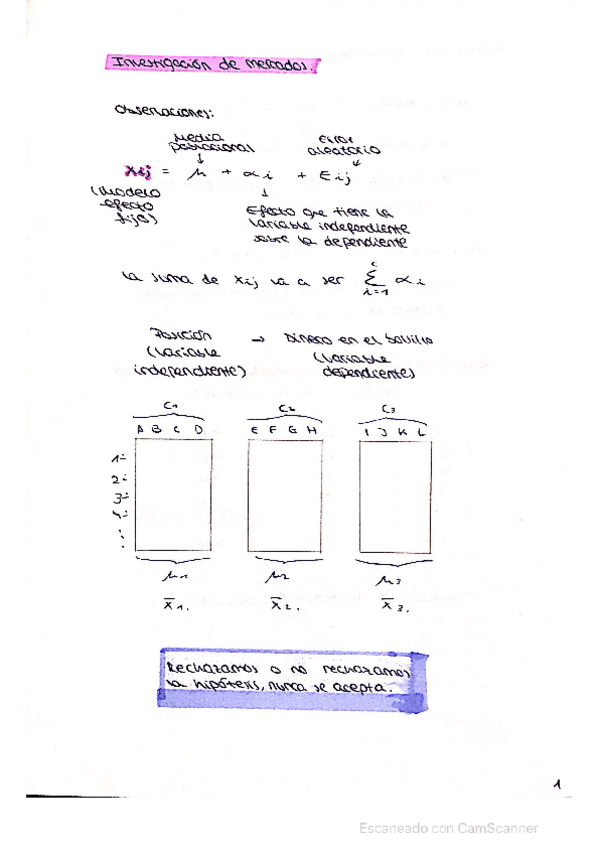 Investigación de mercados.
Observaciones:
Media Error
poblacional aleatorio
↓ ↙
Xij = μ + αi + Eij
(Modelo ↓
efecto Efecto que tiene la
fijo) variable independiente
sobre la dependiente
La suma de Xij va a ser Σ αi
c
i=1
Posición → Dinero en el bolsillo
(variable (variable
independiente) dependiente)
C1 C2 C3
A B C D E F G H I J K L
1-
2-
3-
4-
μ1 μ2 μ3
X̄1. X̄2. X̄3.
Rechazamos o no rechazamos
la hipótesis, nunca se acepta.
1
Escaneado con CamScanner